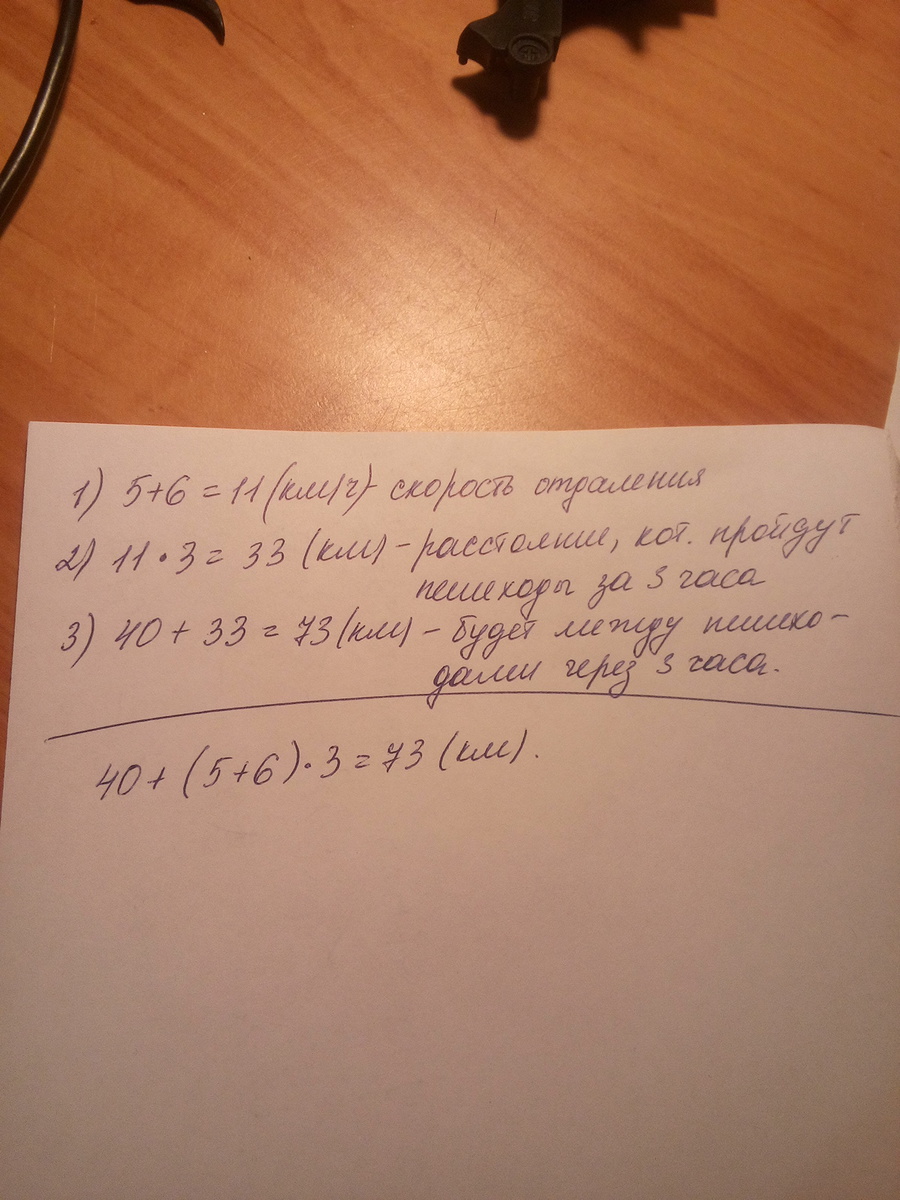 1) 5+6 = 11 (км/ч) - скорость отдаления
2) 11 · 3 = 33 (км) - расстояние, кот. пройдут
пешеходы за 3 часа
3) 40 + 33 = 73 (км) - будет между пешехо-
дами через 3 часа.
40 + (5+6) · 3 = 73 (км).